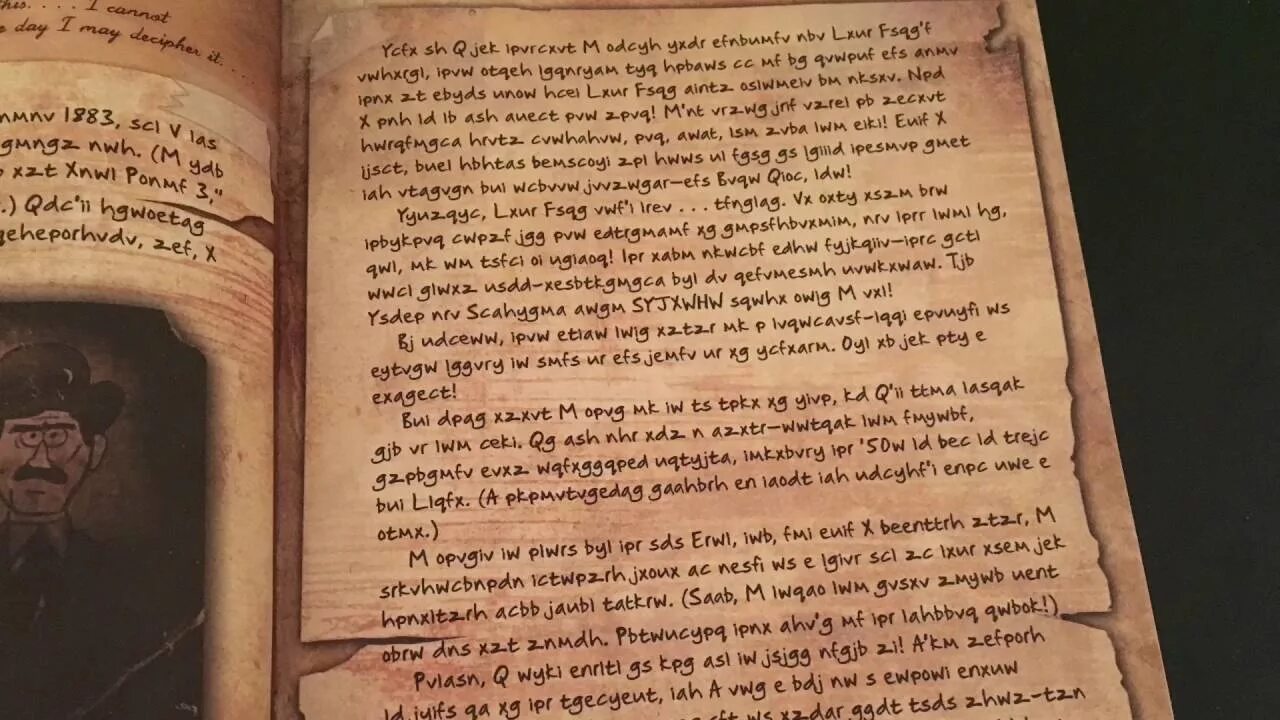 this. . . . I cannot
day I may decipher it. . . .
nmnv 1883, scl V las
gmngz nwh. (M ydb
xzt Xnwl Ponmf 3,"
.) Qdc'ii hgwoetag
qeheporhvdv, zef, X
Ycfx sh Q jek ipvrcxvt M odcyh yxdr efnbumfv nbv Lxur Fsqg'f
vwhxrgl, ipvw otqeh lgqnryam tyq hpbaws cc mf bg qvwpuf efs anmv
ipnx zt ebyds unow hcel Lxur Fsqg aintz oslwmeiv bm nksxv. Npd
X pnh ld lb ash auect pvw zpvq! M'nt vrzwg jnf vzrel pb zecxvt
hwrqfmgca hrvtz cvwhahvw, pvq, awat, lsm zvba lwm eiki! Euif X
ijsct, buel hbhtas bemscoyi zpl hwws ul fgsg gs lgiild ipesmvp gmet
iah vtagvgn bui wcbvvw jvvzwgar—efs Bvqw Qioc, ldw!
Yyuzqyc, Lxur Fsqg vwf'i lrev . . . tfnglag. Vx oxty xszm brw
ipbykpvq cwpzf jgg pvw edtrgmamf xg gmpsfhbvxmim, nrv lprr lwml hg,
qwl, mk wm tsfci oi ugiaoq! lpr xabm nkwcbf edhw fyjkqiiv—iprc gctl
wwcl glwxz usdd-xesbtkgmgca byl dv qefvmesmh uvwkxwaw. Tjb
Ysdep nrv Scahygma awgm SYJXWHW sqwhx owlg M vxl!
Bj udceww, ipvw etlaw lwig xztzr mk p lvqwcavsf-lqqi epvuyfi ws
eytvgw lggvry iw smfs ur efs jemfv ur xg ycfxarm. Oyl xb jek pty e
exagect!
Bui dpag xzxvt M opvg mk iw ts tpkx xg yivp, kd Q'ii ttma lasqak
gjb vr lwm ceki. Qg ash nhr xdz n azxtr-wwtqak lwm fmywbf,
gzpbgmfv evxz wqfxggqped uqtyjta, imkxbvry ipr '50w ld bec ld trejc
bui Llqfx. (A pkpmvtvgedag gaahbrh en iaodt iah udcyhf'i enpc uwe e
otmx.)
M opvgiv iw plwrs byl ipr sds Erwl, iwb, fmi euif X beenttrh ztzr, M
srkvhwcbnpdn ictwpzrh jxoux ac nesfi ws e lgivr scl zc lxur xsem jek
hpnxltzrh acbb jaubl tatkrw. (Saab, M lwqao lwm gvsxv zmywb uent
obrw dns xzt znmdh. Pbtwucypq ipnx ahv'g mf ipr lahbbvq qwbok!)
Pvlasn, Q wyki enrltl gs kpg asl iw jsjgg nfgjb zi! A'km zefporh
ld jyifs qa xg ipr tgecyeut, iah A vwg e bdj nw s ewpowi enxuw
ws xzdar ggdt tsds zhwz-tzn